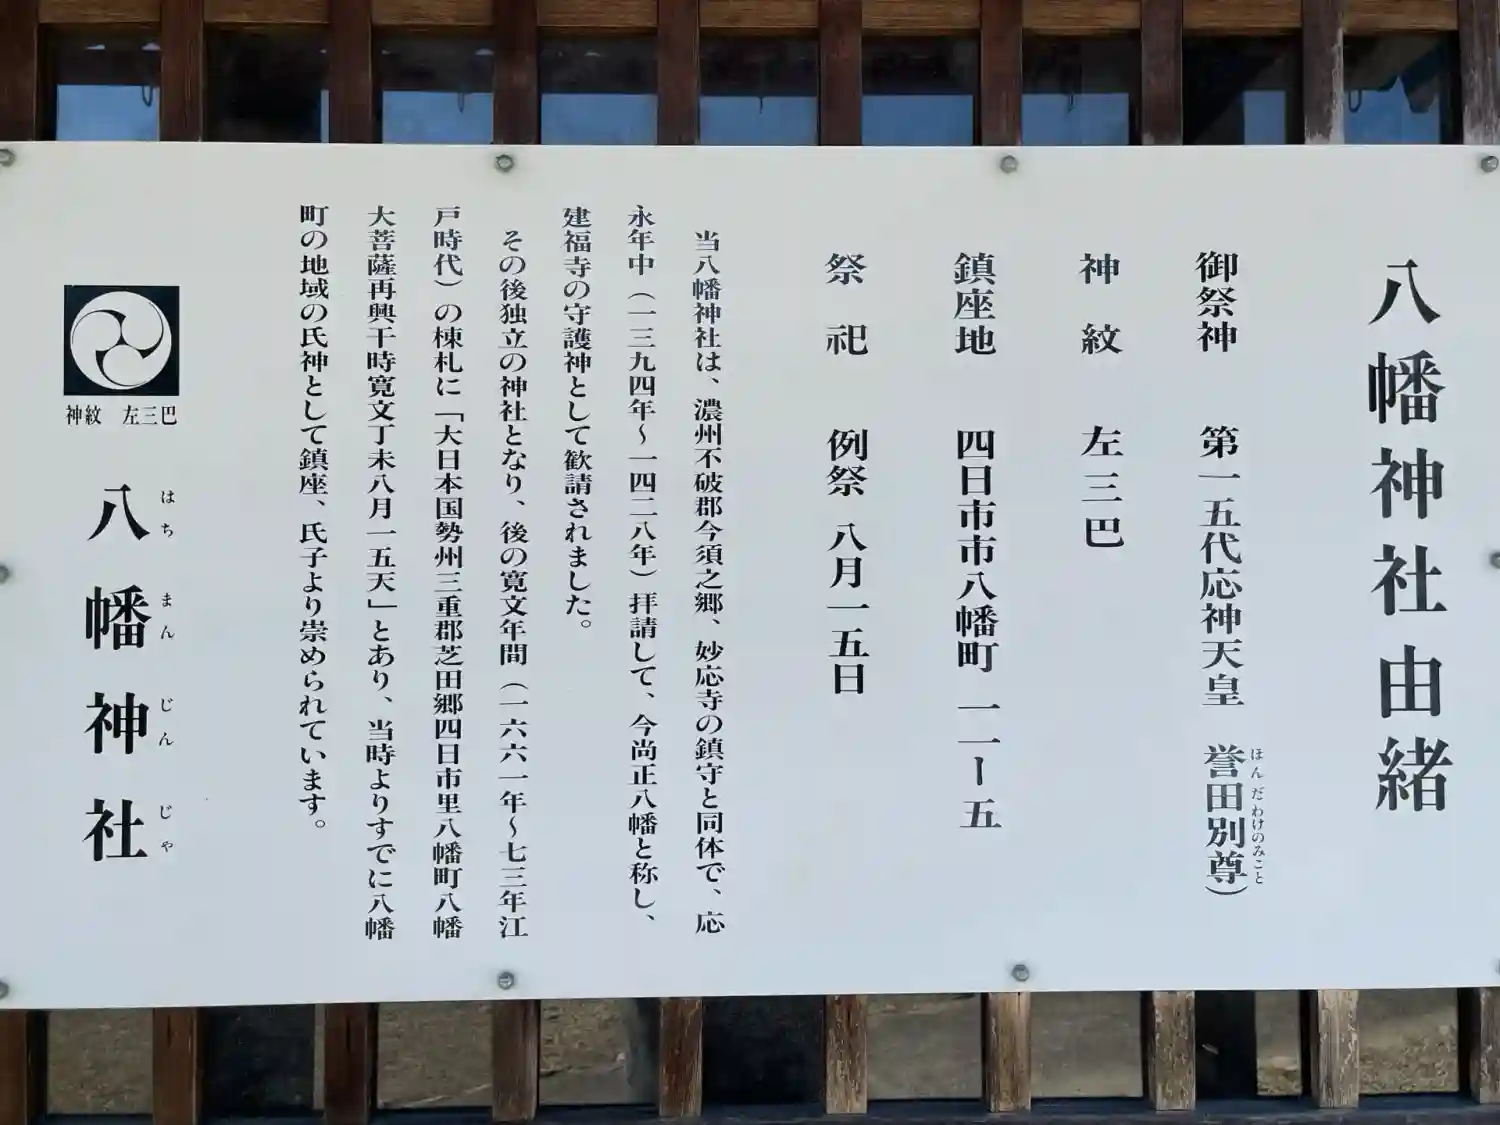 八幡神社由緒
御祭神　第一五代応神天皇　誉田別尊）
ほんだわけのみこと
神　紋　左三巴
鎮座地　四日市市八幡町　一一ー五
祭　祀　例祭　八月一五日
当八幡神社は、濃州不破郡今須之郷、妙応寺の鎮守と同体で、応
永年中（一三九四年～一四二八年）拝請して、今尚正八幡と称し、
建福寺の守護神として歓請されました。
その後独立の神社となり、後の寛文年間（一六六一年～七三年江
戸時代）の棟札に「大日本国勢州三重郡芝田郷四日市里八幡町八幡
大菩薩再興干時寛文丁未八月一五天」とあり、当時よりすでに八幡
町の地域の氏神として鎮座、氏子より崇められています。
神紋　左三巴
八幡神社
はちまんじんじゃ